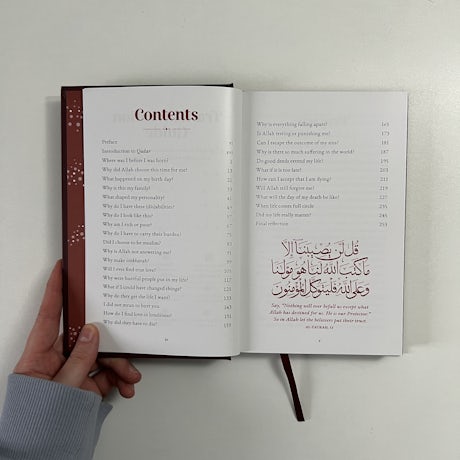 Contents
Preface
Introduction to Qadar
Where was I before I was born?
Why did Allah choose this time for me?
What happened on my birth day?
Why is this my family?
What shaped my personality?
Why do I have these (dis)abilities?
Why do I look like this?
Why do I have to carry their burden?
Did I choose to be muslim?
Why is Allah not answering me?
Why make istikhara?
Will I ever find true love?
Why were harmful people put in my life?
What if I could have changed things?
Why do they get the life I want?
I did not mean to hurt you.
How do I find in loneliness?
Why did they have to die?
Why is everything falling apart? 165
Is Allah testing or punishing me? 173
Can I escape the outcome of my sins? 181
Why is there so much suffering in the world? 187
Do good deeds extend my life? 205
What if it is too late? 211
How can I accept that I am dying? 219
Will Allah still forgive me? 227
What will the day of my death be like? 231
When life comes full circle 235
Did my life really matter? 245
Final reflection 253
قُل لَّن يُصِيبَنَا إِلَّا
مَا كَتَبَ اللَّهُ لَنَا هُوَ مَوْلَىٰنَا
وَعَلَى اللَّهِ فَلْيَتَوَكَّلِ الْمُؤْمِنُونَ
Say, "Nothing will ever befall us except what
Allah has destined for us. He is our Protector."
So in Allah let the believers put their trust.